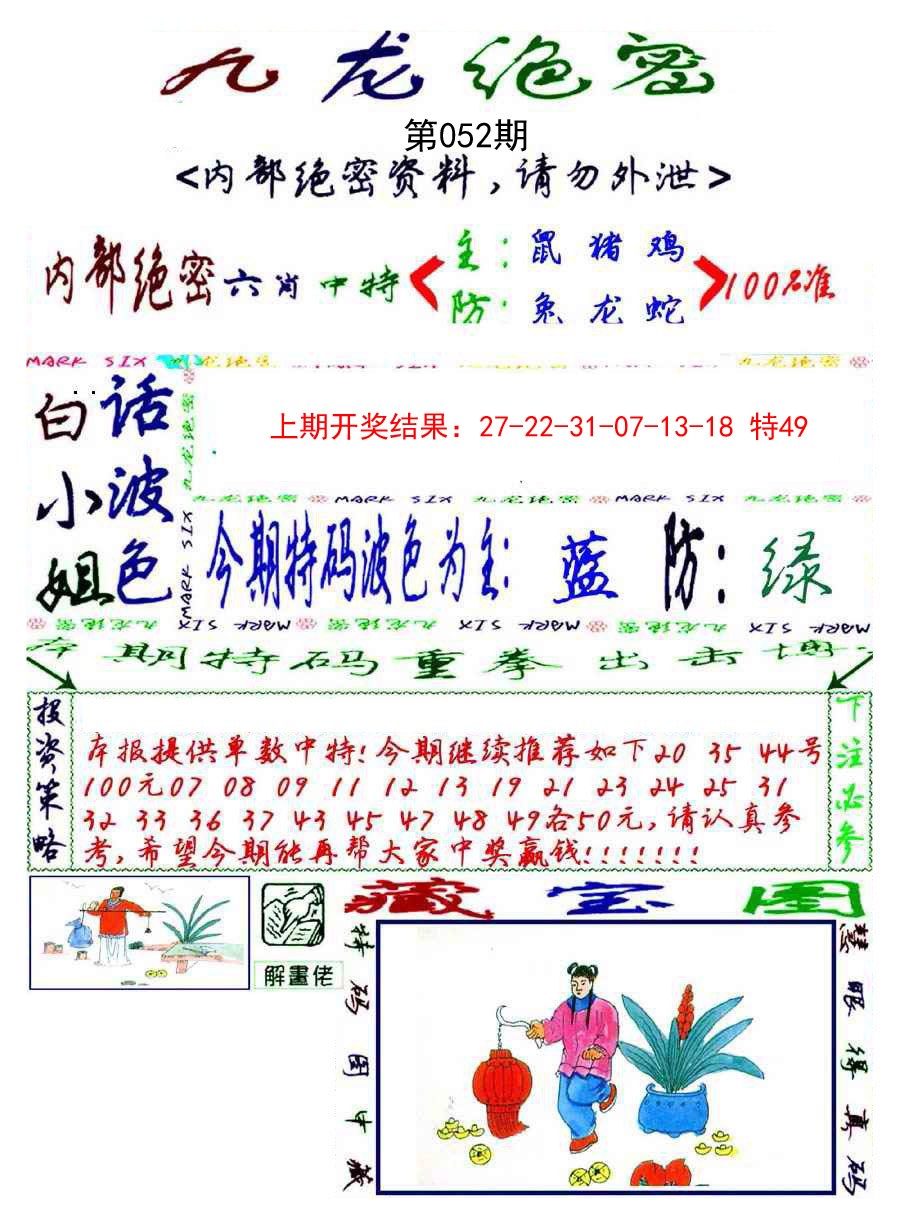 九龙绝密
第052期
<内部绝密资料,请勿外泄>
内部绝密六肖中特
主:鼠猪鸡
防:兔龙蛇
100%准
MARK SIX 九龙绝密
九龙绝密
白话
小波
姐色
上期开奖结果: 27-22-31-07-13-18 特49
九龙绝密 MARK SIX 九龙绝密 MARK SIX 九龙绝密
MARK SIX
今期特码波色为主: 蓝 防: 绿
九龙绝密 MARK SIX 九龙绝密 MARK SIX 九龙绝密 MARK SIX
本期特码重拳出击
投资策略
本报提供单数中特!今期继续推荐如下20 35 44号
100元07 08 09 11 12 13 19 21 23 24 25 31
32 33 36 37 43 45 47 48 49各50元,请认真参
考,希望今期能再帮大家中奖赢钱!!!!!!!
下注必参
解畫佬
藏宝图
特码图中藏
慧眼得真码